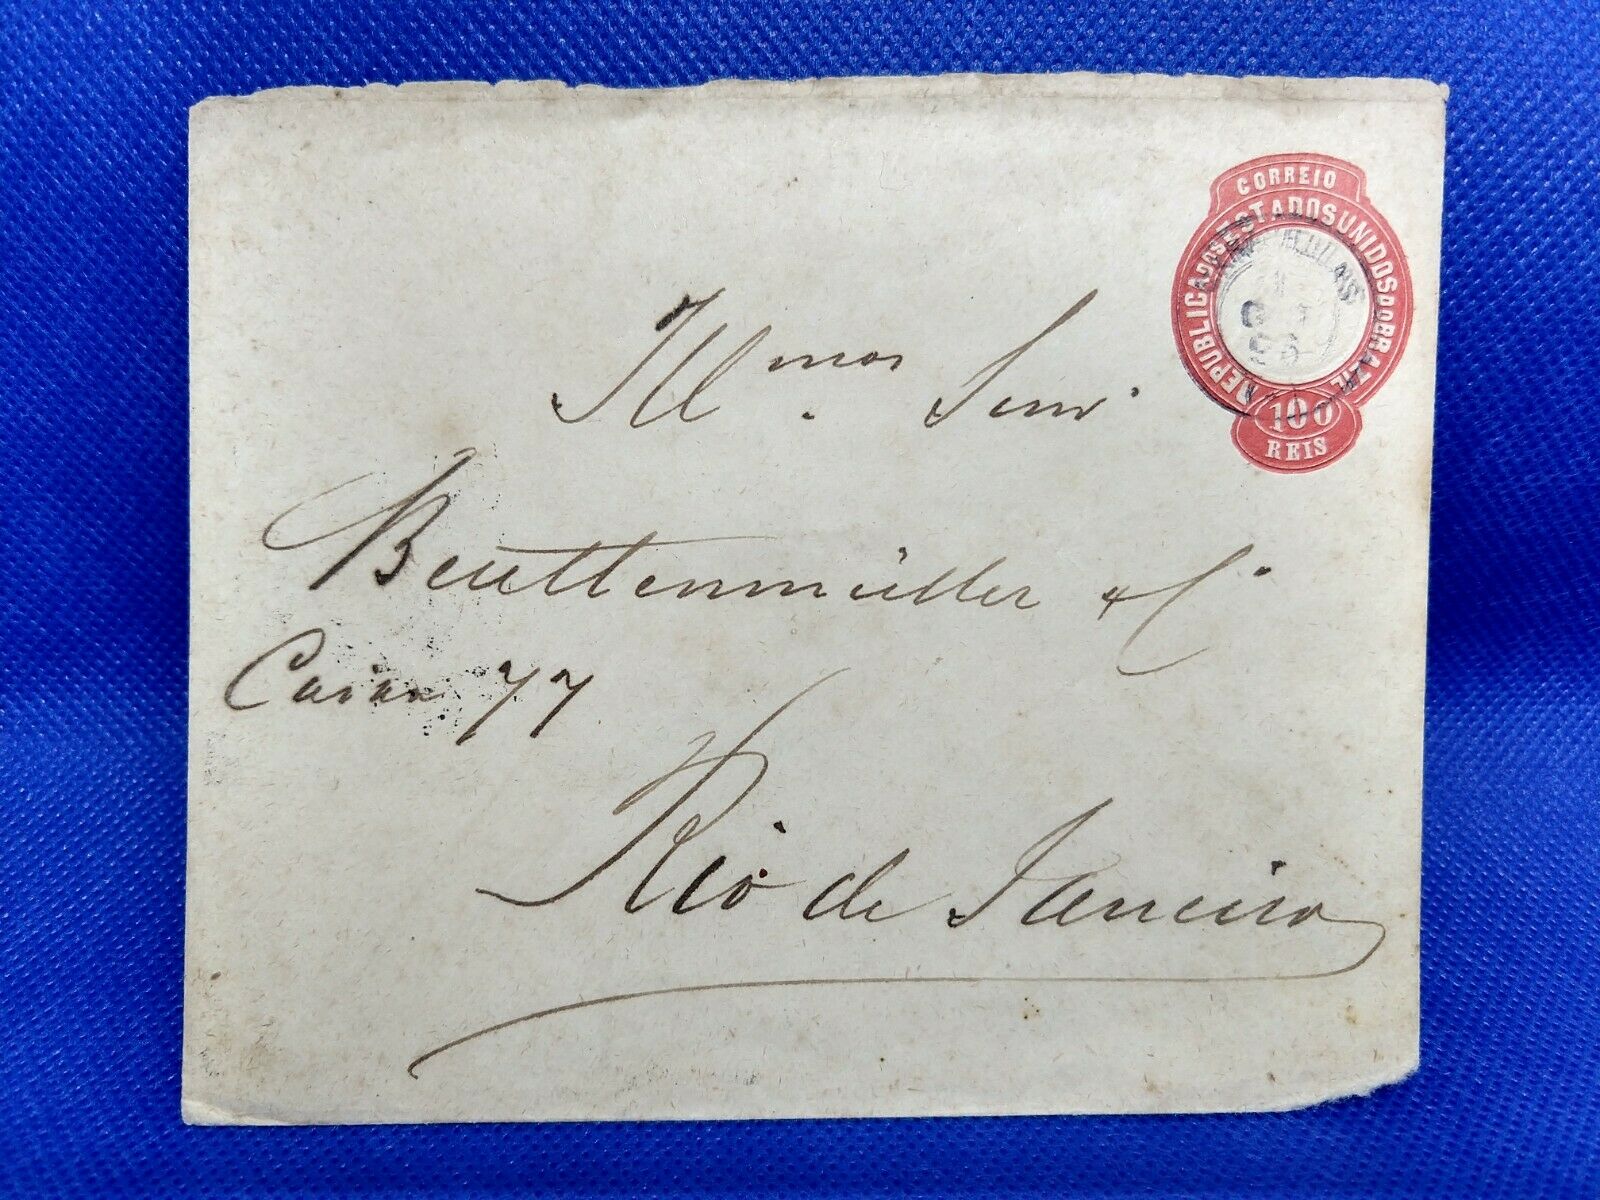 CORREIO
REPUBLICA DOS ESTADOS UNIDOS DO BRAZIL
100
REIS
Ill.mos Snrs.
Beuttenmüller & C.
Caixa 77
Rio de Janeiro